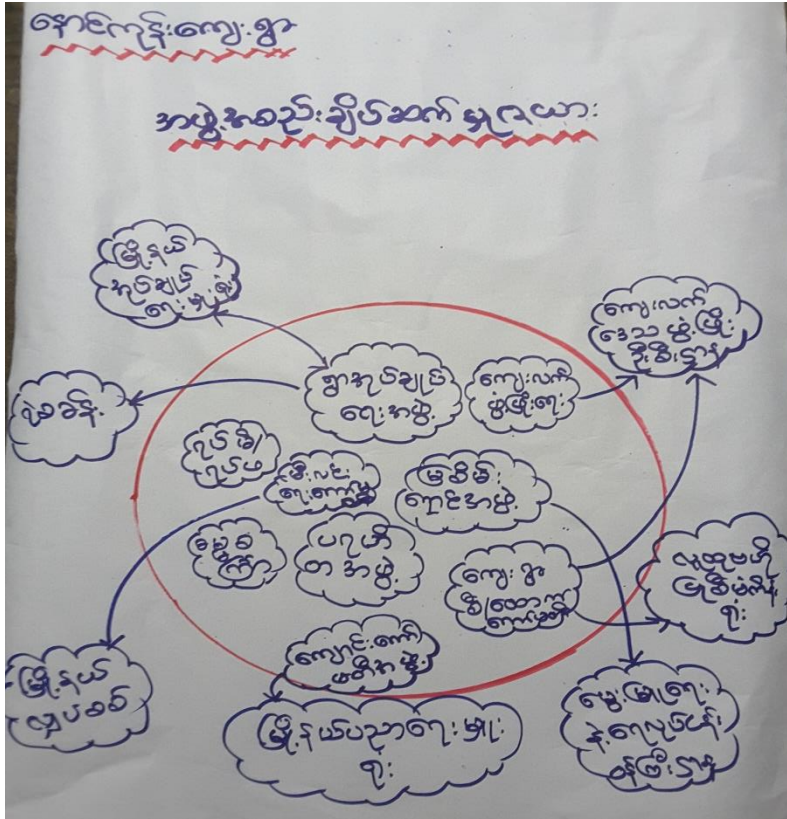 နောင်ကုန်းကျေးရွာ
အဖွဲ့အစည်းချိပ်ဆက်မှုဇယား
မြို့နယ်
အုပ်ချုပ်
ရေးမှူးရုံး
ကျေးလက်
ဒေသဖွံ့ဖြိုး
ဦးစီးဌာန
ရွာအုပ်ချုပ်
ရေးအဖွဲ့
ကျေးလက်
ဖွံ့ဖြိုးရေး
ရဲစခန်း
ရပ်မိ/
ရပ်ဖ
မီးလင်း
ရေးကော်မတီ
မြစိမ်း
ရောင်အဖွဲ့
ပရဟိ
တအဖွဲ့
ကျေးရွာ
စီ/ထောက်
ကော်မတီ
လူထုဗဟို
ပြုစီမံကိန်း
ရုံး
ကျောင်းကော်
မတီအဖွဲ့
မြို့နယ်
လျှပ်စစ်
မြို့နယ်ပညာရေးမှူး
ရုံး
မွေးမြူရေး
နဲ့ရေလုပ်ငန်း
ဝန်ကြီးဌာန